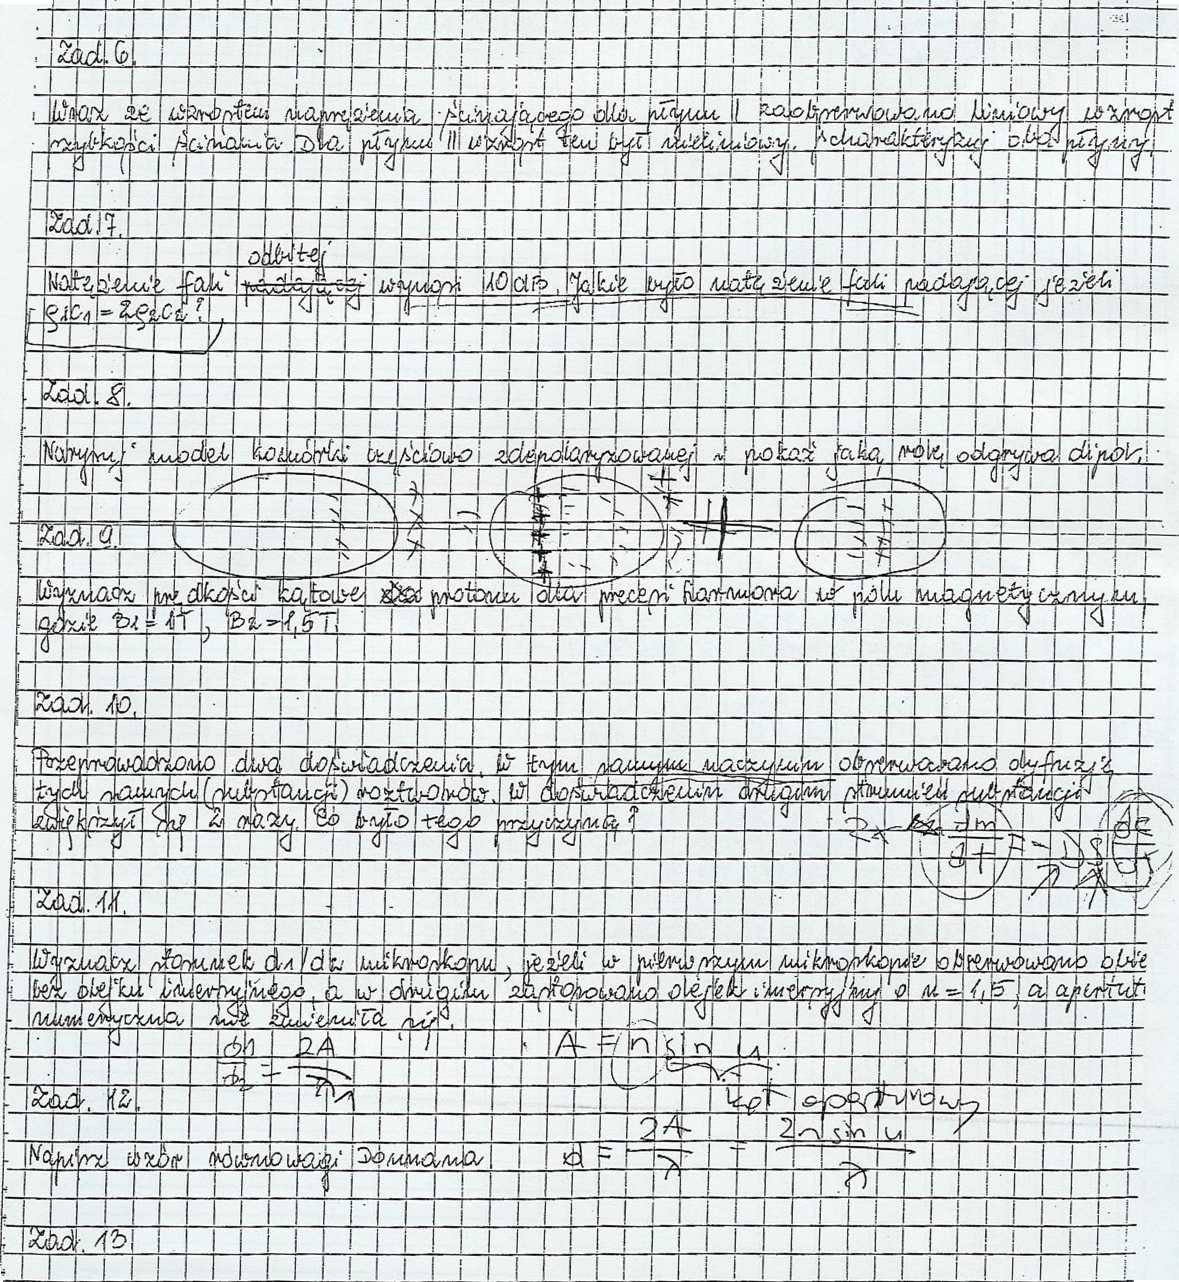 Zad. 6.
Wraz ze wzrostem naprężenia ścinającego dla płynu I zaobserwowano liniowy wzrost
szybkości ścinania. Dla płynu II wzrost ten był nieliniowy. Scharakteryzuj oba płyny.
Zad. 7.
odbitej
Natężenie fali padającej wynosi 10 dB. Jakie było natężenie fali padającej jeżeli
ρ1c1 = 2ρ2c2?
Zad. 8.
Narysuj model komórki częściowo zdepolaryzowanej i pokaż jaką rolę odgrywa dipol.
Zad. 9.
Wyznacz prędkości kątowe protonu dla precesji Larmora w polu magnetycznym,
gdzie B1 = 1T, B2 = 1,5T.
Zad. 10.
Przeprowadzono dwa doświadczenia. W tym samym naczyniu obserwowano dyfuzję
tych samych (substancji) roztworów. W doświadczeniu drugim strumień substancji
zwiększył się 2 razy. Co było tego przyczyną?
dm/dt = -DS
Zad. 11.
Wyznacz stosunek d1/d2 mikroskopu, jeżeli w pierwszym mikroskopie obserwowano obie
bez olejku imersyjnego, a w drugim zastosowano olejek imersyjny o n = 1,5, a apertura
numeryczna nie zmieniła się.
d1/d2 = 2A/λ A = n sin u
kąt aperturowy
Zad. 12.
Napisz wzór równowagi Donnana. d = 2A/λ = 2n sin u/λ
Zad. 13.